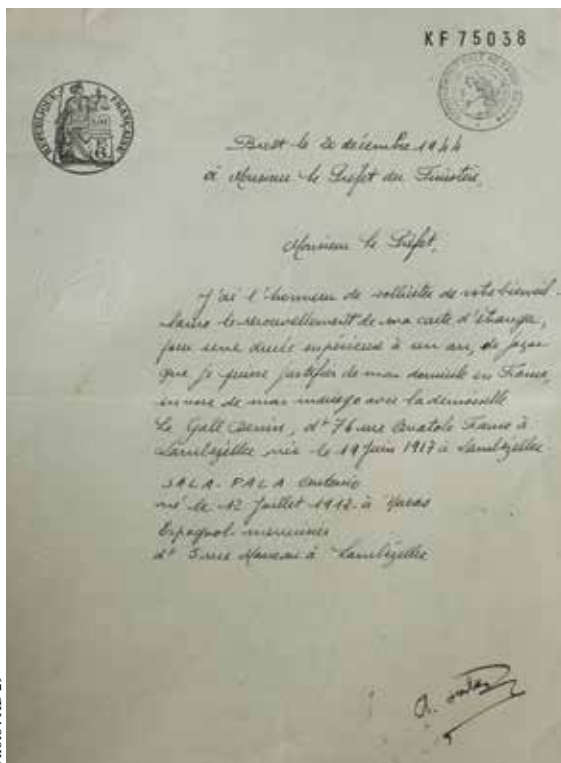 KF 75038
RÉPUBLIQUE FRANÇAISE
Brest le 20 décembre 1944
à Monsieur le Préfet du Finistère,
Monsieur le Préfet,
J'ai l'honneur de solliciter de votre bienveil-
lance le renouvellement de ma carte d'étranger,
pour une durée supérieure à un an, de façon
que je puisse justifier de mon domicile en France,
en vue de mon mariage avec la demoiselle
Le Gall Denise, dt 76 rue Anatole France à
Lambézellec née le 19 Juin 1917 à Lambézellec
SALA-PALA Antonio
né le 12 Juillet 1912 à
Espagnol menuisier
dt 5 rue à Lambézellec
A.